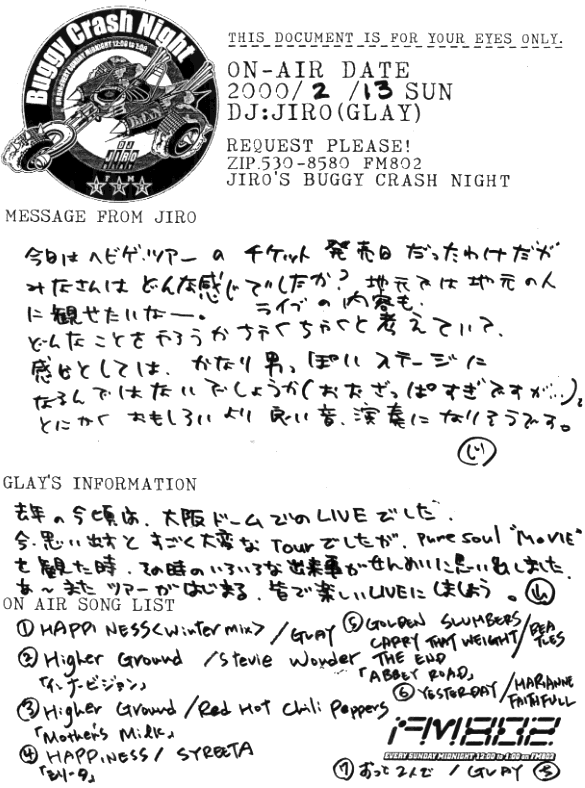 Buggy Crash Night
EVERY SUNDAY MIDNIGHT 12:00 to 1:00
DJ
JIRO
F M
THIS DOCUMENT IS FOR YOUR EYES ONLY.
ON-AIR DATE
2000/2/13 SUN
DJ:JIRO(GLAY)
REQUEST PLEASE!
ZIP.530-8580 FM802
JIRO'S BUGGY CRASH NIGHT
MESSAGE FROM JIRO
今日はヘビゲツアーのチケット発売日だったわけだが
みなさんはどんな感じでしたか?地元では地元の人
に観せたいなー。ライブの内容も、
どんなことをやろうか ちゃくちゃくと考えていて、
感じとしては、かなり男っぽいステージに
なるんではないでしょうか(おおざっぱすぎですが…)。
とにかくおもしろいより良い音、演奏になりそうです。
(じ)
GLAY'S INFORMATION
去年の今頃は、大阪ドームでのLIVEでした。
今、思い出すとすごく大変なTourでしたが、pure soul "MOVIE"
を観た時、その時のいろいろな出来事がせんめいに思い出しました。
あ〜またツアーがはじまる、皆で楽しいLIVEにしましょう。(山)
ON AIR SONG LIST
①HAPPINESS<Winter mix>/GLAY
②Higher Ground /Stevie Wonder
「インナービジョン」
③Higher Ground/Red Hot Chili Peppers
「Mother's Milk」
④HAPPINESS/ SYREETA
「シリータ」
⑤GOLDEN SLUMBERS
CARRY THAT WEIGHT/BEATLES
THE END
「ABBEY ROAD」
⑥YESTERDAY/MARIANNE FAITHFULL
FM802
EVERY SUNDAY MIDNIGHT 12:00 to 1:00 on FM802
⑦ / GLAY